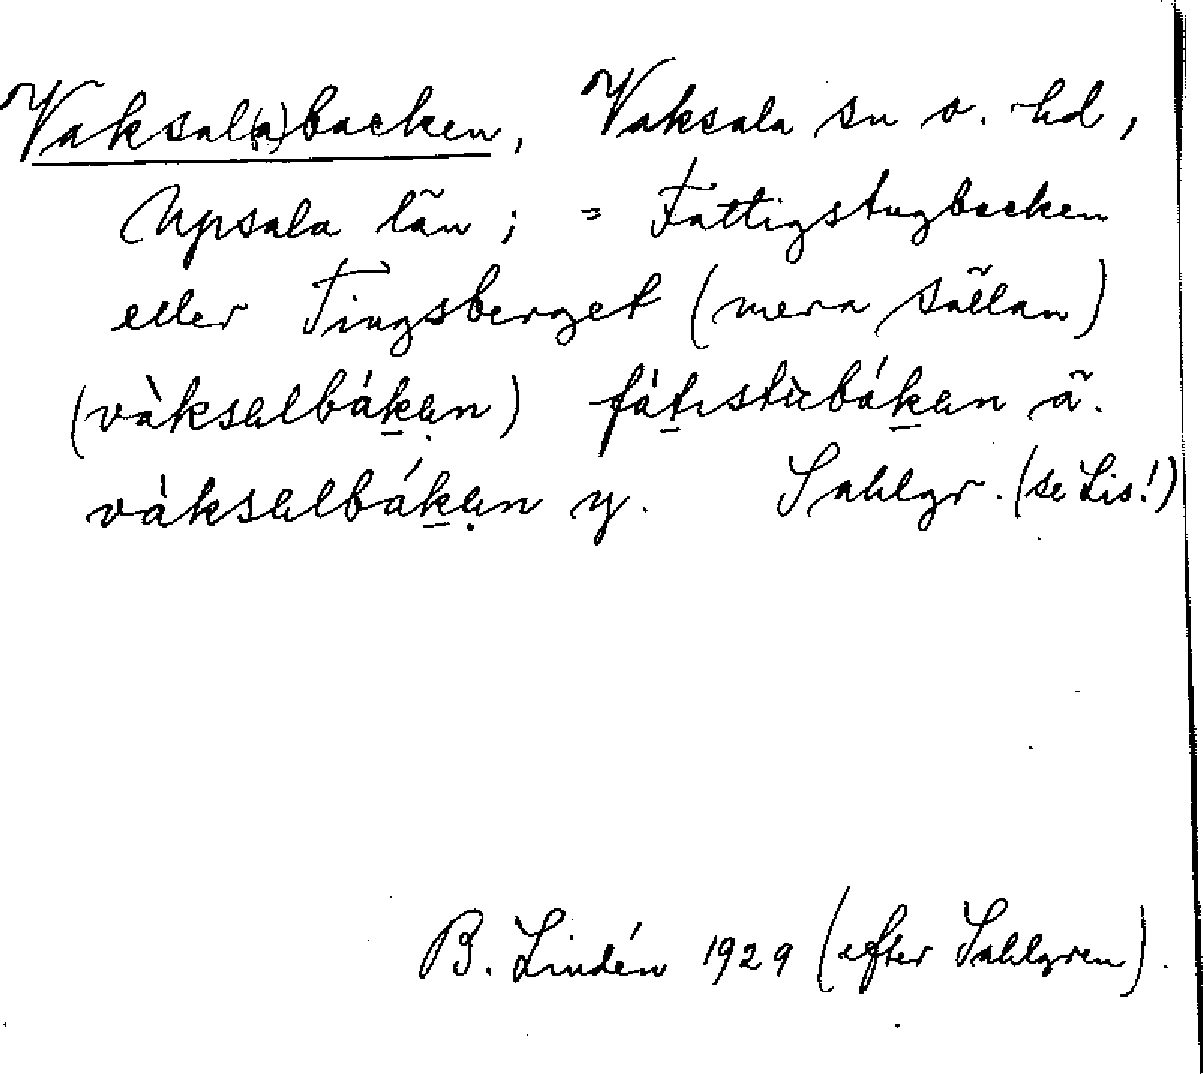 Vaksal(a)backen, Vaksala sn o. hd,
Upsala län; = Fattigstugbacken
eller Tingsberget (mera sällan)
(vàksalbák̲ạn) fàt̲ıstùbák̲an ä.
vàksalbák̲ạn y. Sahlgr. (se Lis!)
B. Lindén 1929 (efter Sahlgren).